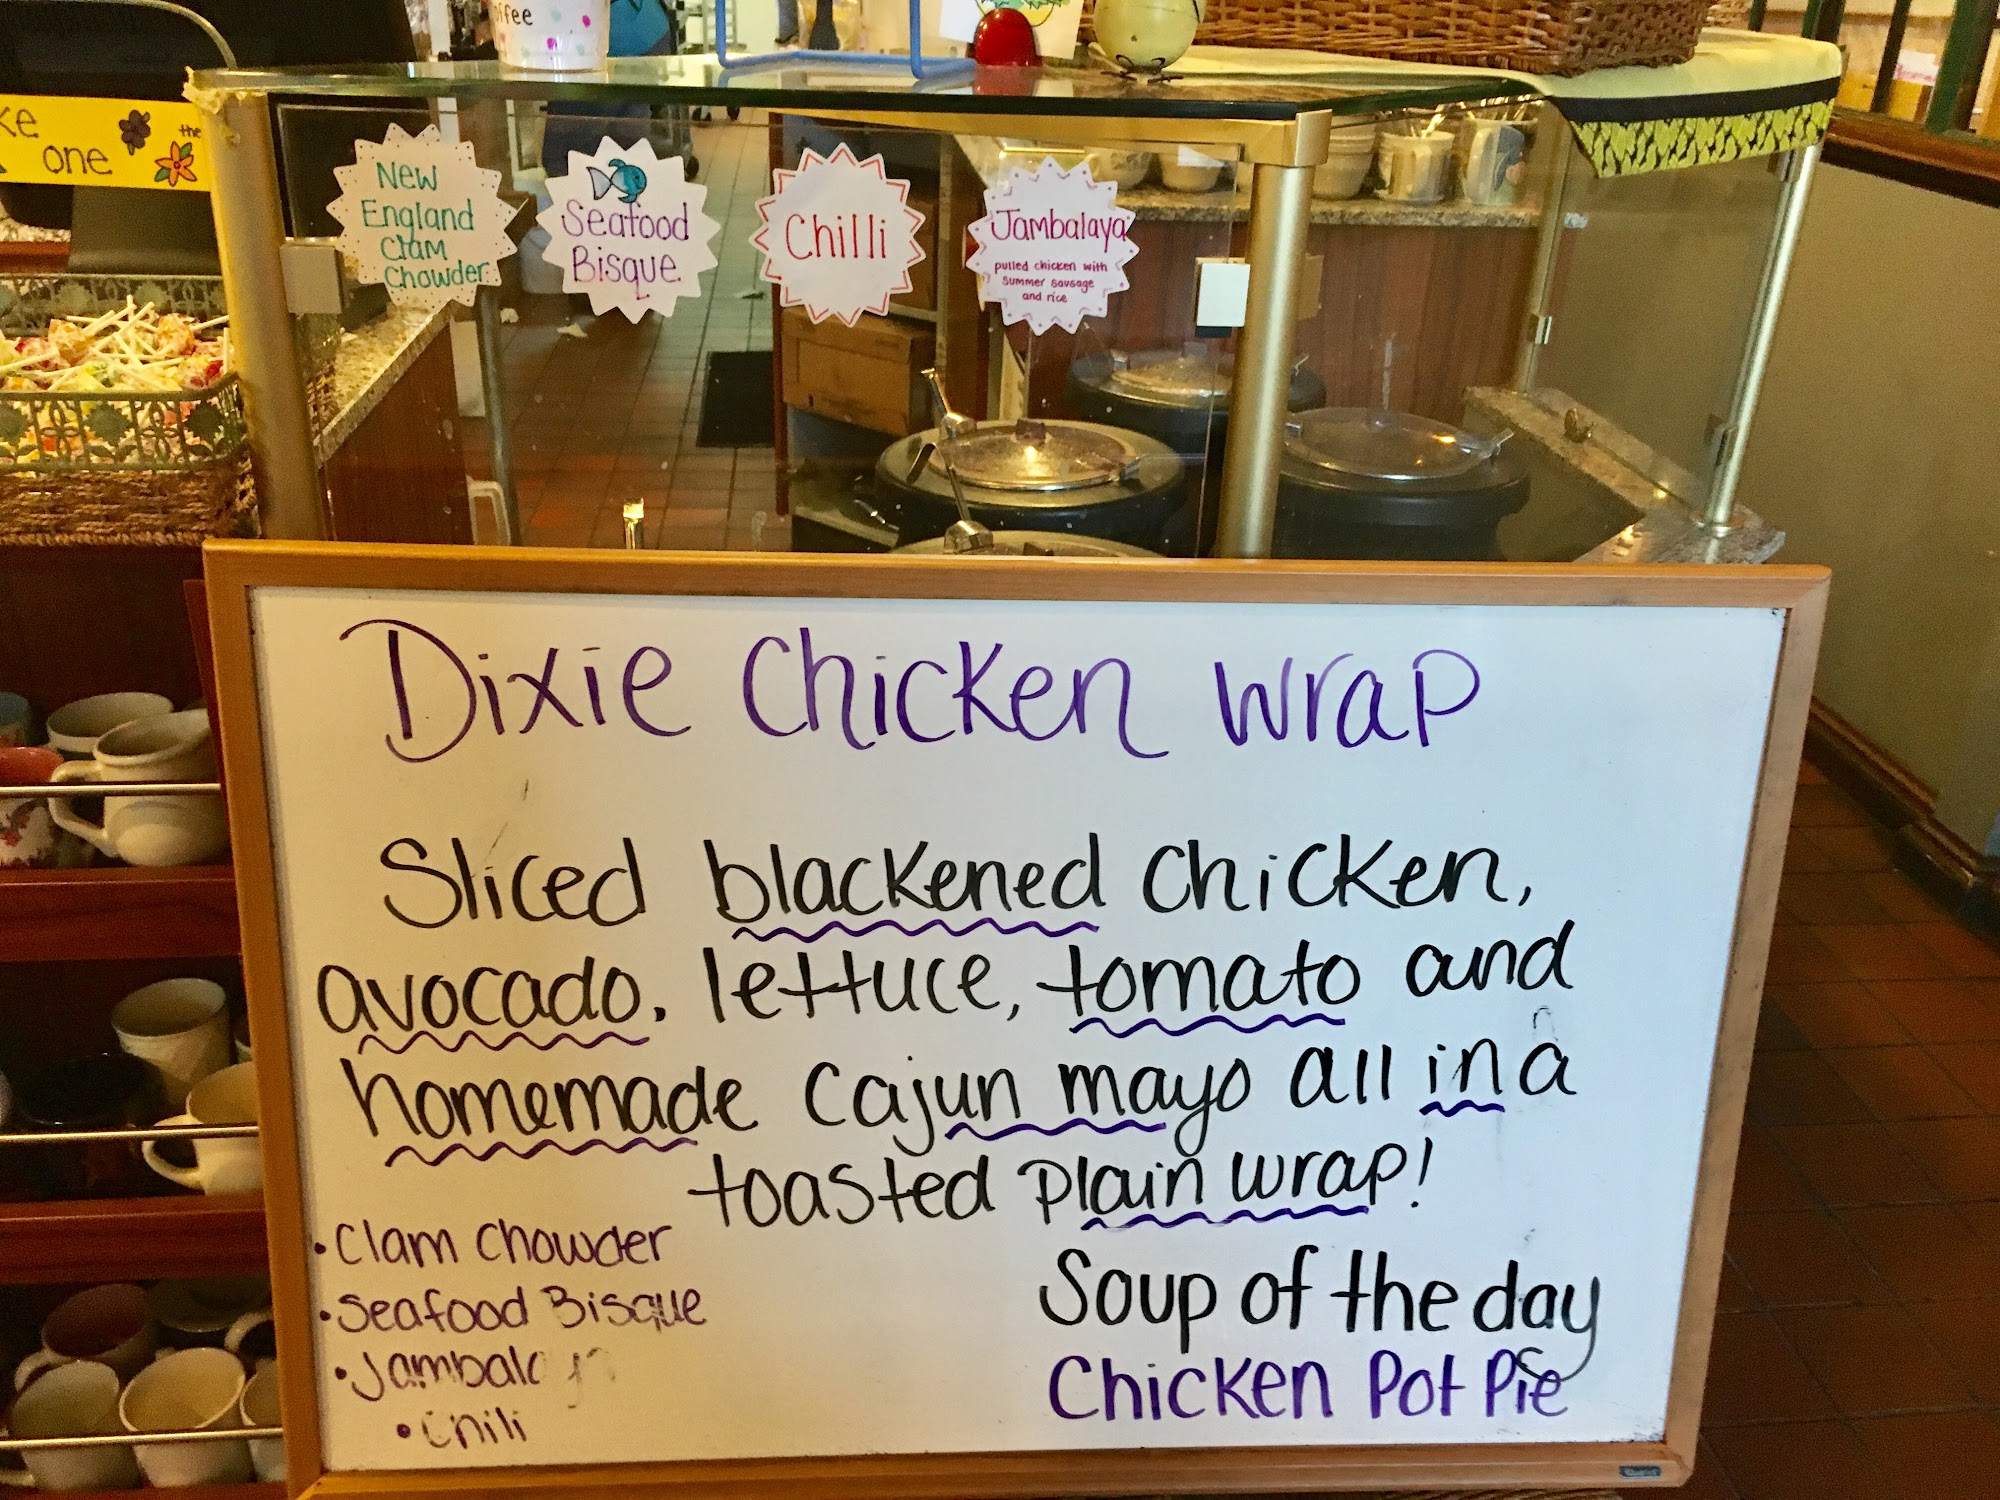 offee
ke
one
the
New
England
Clam
Chowder
Seafood
Bisque
Chilli
Jambalaya
pulled chicken with
summer sausage
and rice
Dixie Chicken Wrap
Sliced blackened chicken,
avocado. lettuce, tomato and
homemade Cajun mayo all in a
toasted plain wrap!
• Clam Chowder
• Seafood Bisque
• Jambala
• Chili
Soup of the day
Chicken Pot Pie